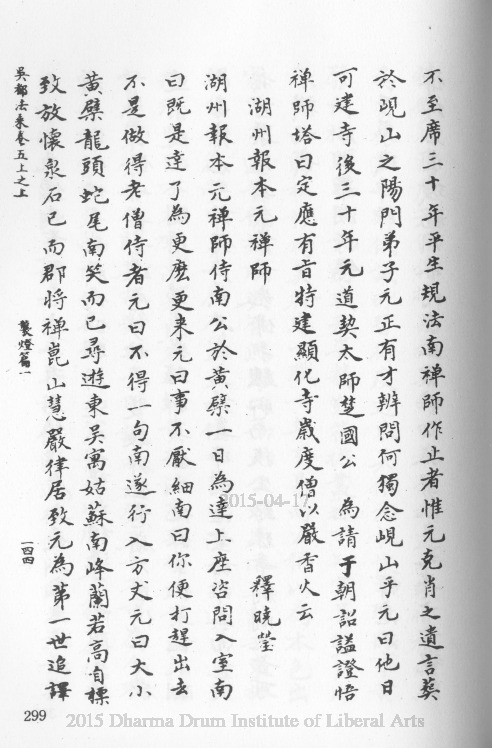 不至席三十年平生規法南禪師作止者惟元克肖之遺言葬
於峴山之陽門弟子元正有才辨問何獨念峴山乎元曰他日
可建寺後三十年元道契太師楚國公 為請于朝詔謚證悟
禪師塔曰定應有旨特建顯化寺歲度僧以嚴香火云
湖州報本元禪師 釋曉瑩
湖州報本元禪師侍南公於黃檗一日為達上座咨問入室南
曰既是達了為更麼更來元曰事不厭細南曰你便打趕出去
不是做得老僧侍者元曰不得一句南遂行入方丈元曰大小
黃檗龍頭蛇尾南笑而已尋遊東吳寓姑蘇南峰蘭若高自標
致放懷泉石已而郡將禪崑山慧嚴律居致元為第一世追譯
吳都法乘卷五上之上
襲燈篇一
一四四
299
2015-04-17
2015 Dharma Drum Institute of Liberal Arts